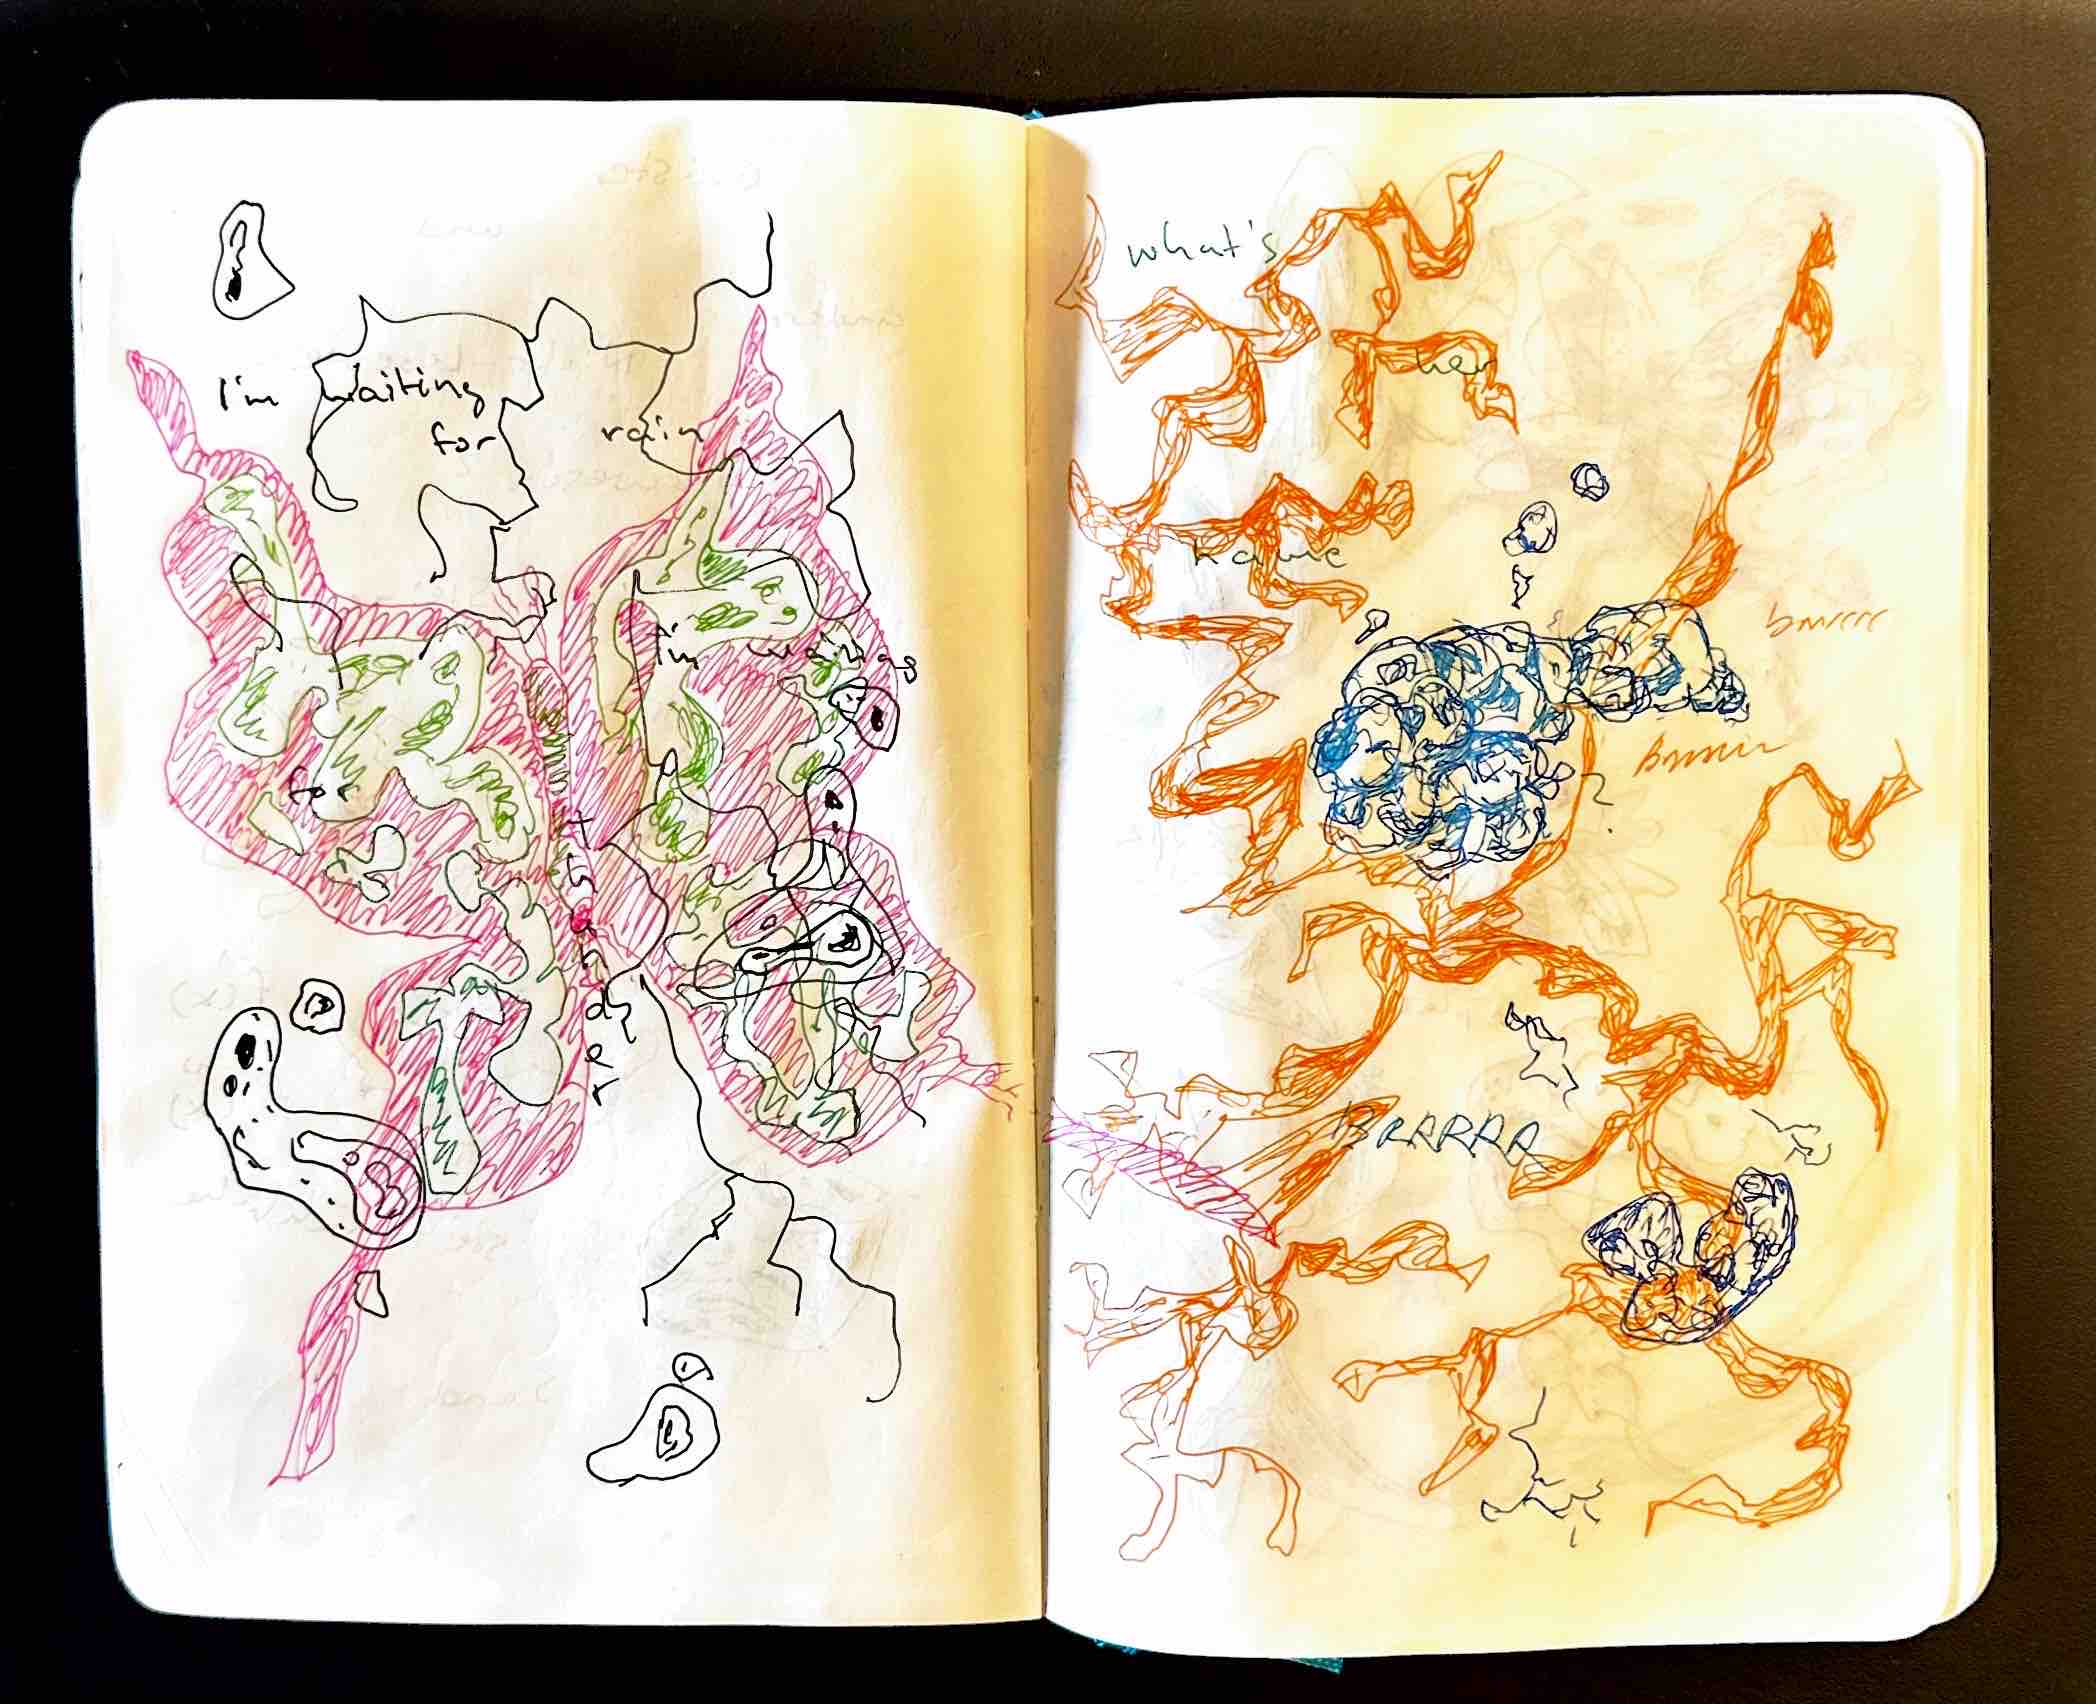 I'm waiting
for rain
I'm waiting
for
what's
her
name
?
brrrrr
Brrrrr
BRRRRR